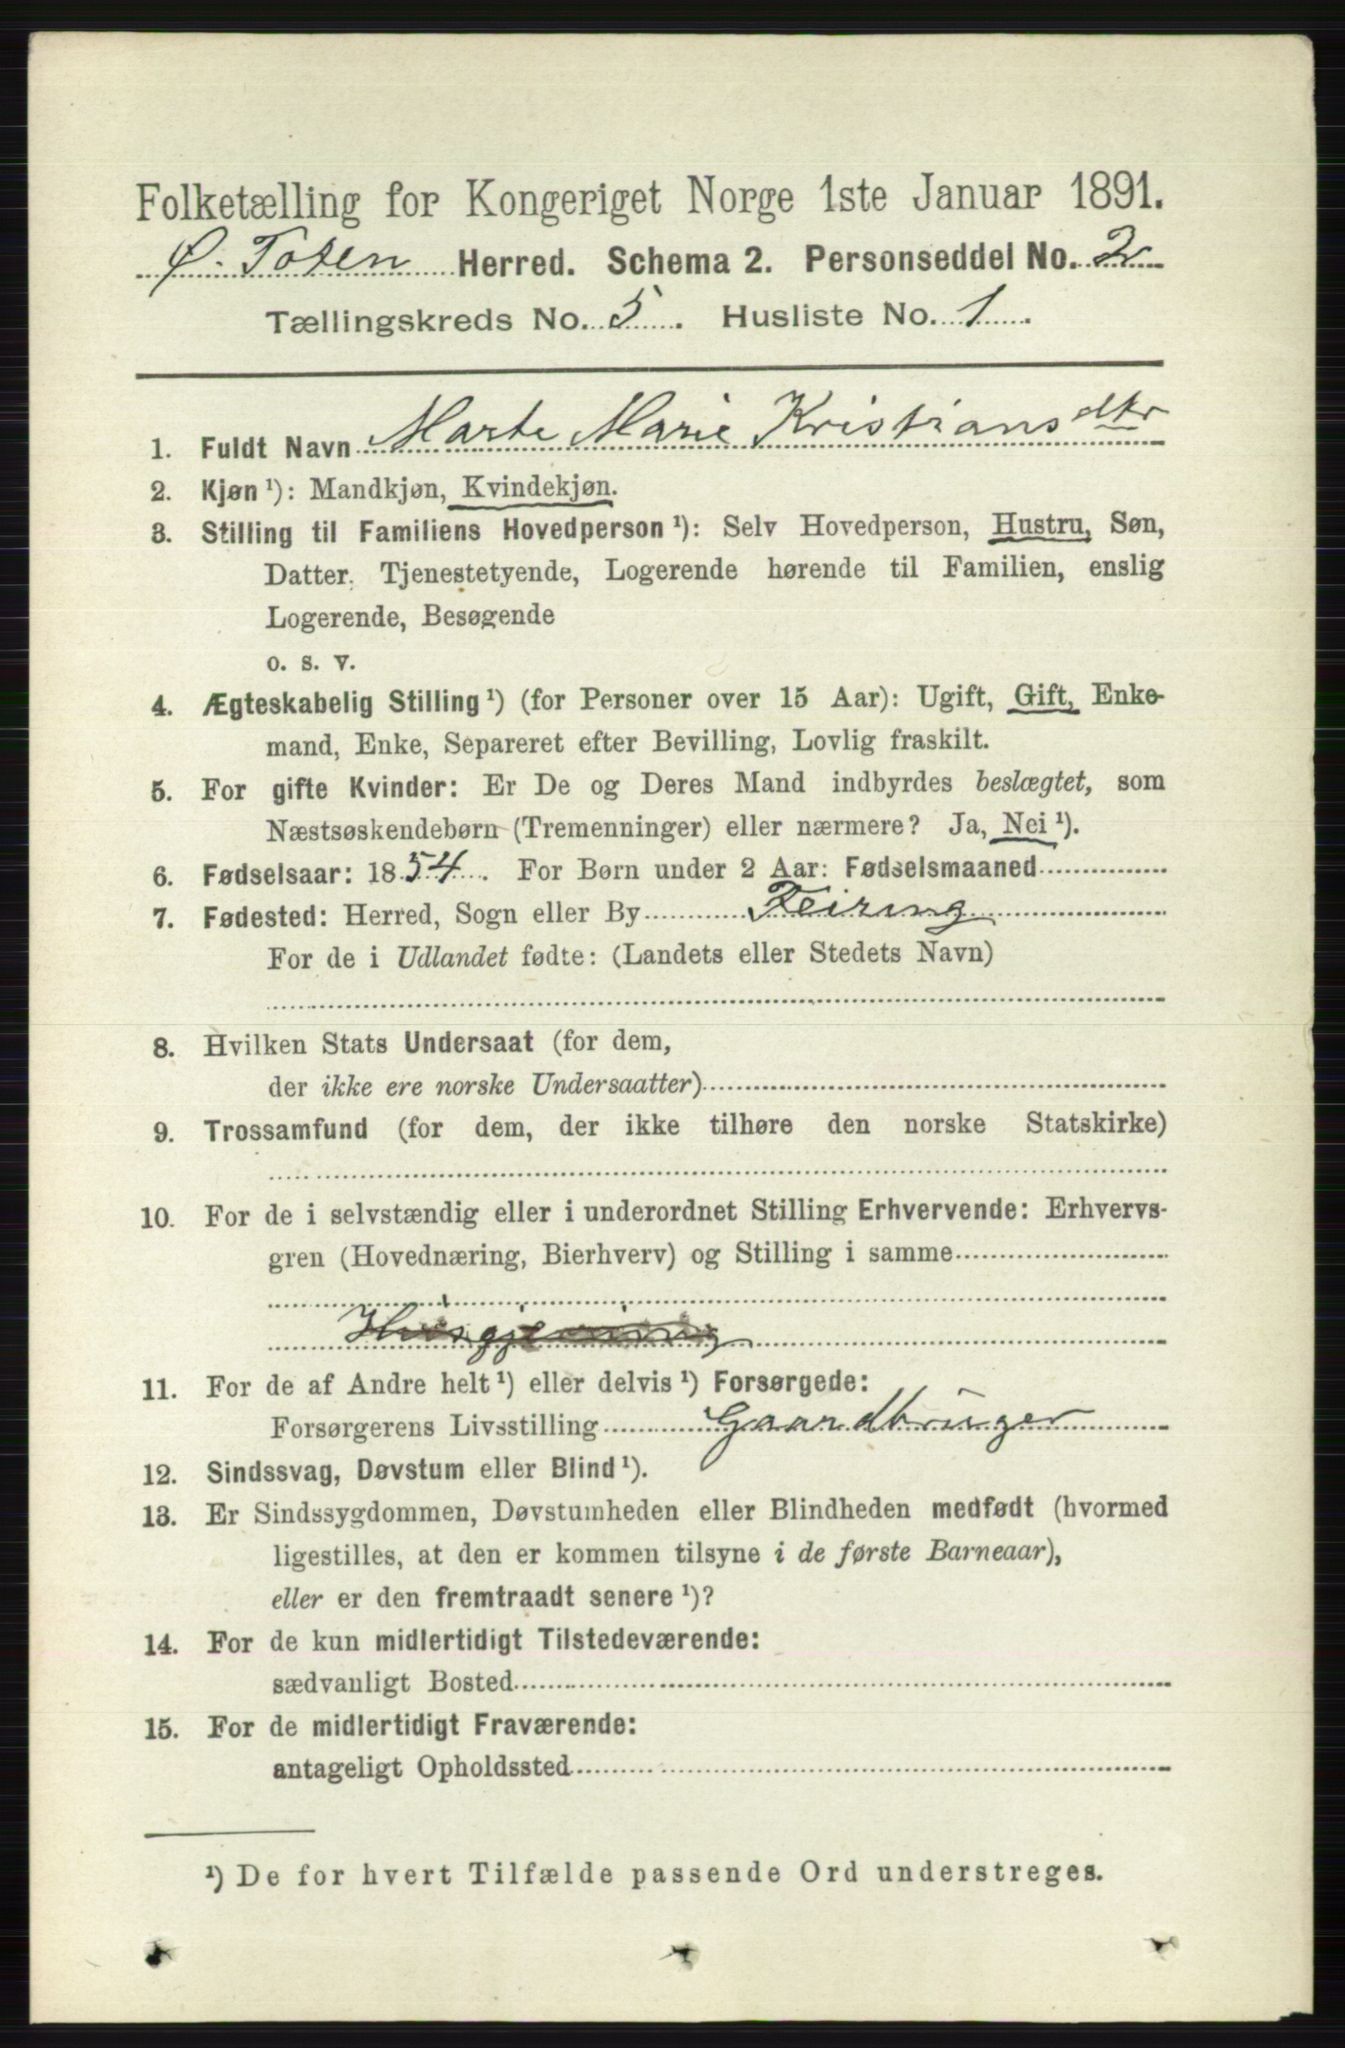 Folketælling for Kongeriget Norge 1ste Januar 1891.
Ø. Toten Herred. Schema 2. Personseddel No. 2
Tællingskreds No. 5. Husliste No. 1.
1. Fuldt Navn Marte Marie Kristiansdtr
2. Kjøn ¹): Mandkjøn, Kvindekjøn.
3. Stilling til Familiens Hovedperson ¹): Selv Hovedperson, Hustru, Søn,
Datter, Tjenestetyende, Logerende hørende til Familien, enslig
Logerende, Besøgende
o. s. v.
4. Ægteskabelig Stilling ¹) (for Personer over 15 Aar): Ugift, Gift, Enke-
mand, Enke, Separeret efter Bevilling, Lovlig fraskilt.
5. For gifte Kvinder: Er De og Deres Mand indbyrdes beslægtet, som
Næstsøskendebørn (Tremenninger) eller nærmere? Ja, Nei ¹).
6. Fødselsaar: 1854. For Børn under 2 Aar: Fødselsmaaned
7. Fødested: Herred, Sogn eller By Feiring
For de i Udlandet fødte: (Landets eller Stedets Navn)
8. Hvilken Stats Undersaat (for dem,
der ikke ere norske Undersaatter)
9. Trossamfund (for dem, der ikke tilhøre den norske Statskirke)
10. For de i selvstændig eller i underordnet Stilling Erhvervende: Erhvervs-
gren (Hovednæring, Bierhverv) og Stilling i samme
Husgjerning
11. For de af Andre helt ¹) eller delvis ¹) Forsørgede:
Forsørgerens Livsstilling Gaardbruger
12. Sindssvag, Døvstum eller Blind ¹).
13. Er Sindssygdommen, Døvstumheden eller Blindheden medfødt (hvormed
ligestilles, at den er kommen tilsyne i de første Barneaar),
eller er den fremtraadt senere ¹)?
14. For de kun midlertidigt Tilstedeværende:
sædvanligt Bosted
15. For de midlertidigt Fraværende:
antageligt Opholdssted
¹) De for hvert Tilfælde passende Ord understreges.